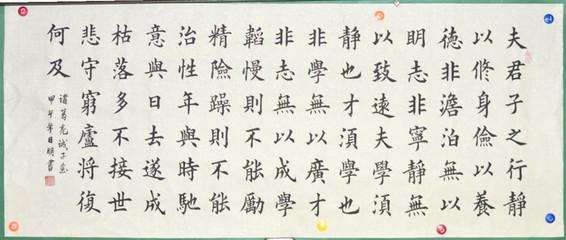 夫君子之行靜
以修身儉以養
徳非澹泊無以
明志非寧靜無
以致遠夫學須
靜也才須學也
非學無以廣才
非志無以成學
韜慢則不能勵
精險躁則不能
治性年與時馳
意與日去遂成
枯落多不接世
悲守窮廬將復
何及
諸葛亮誡子
甲午